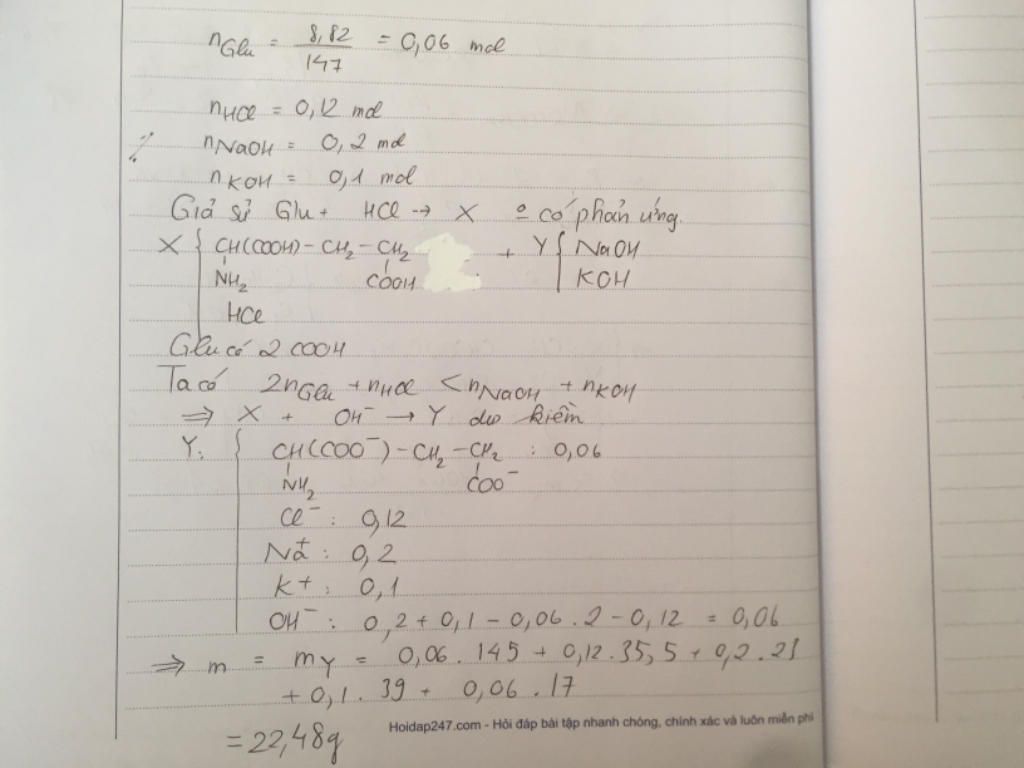 nGlu = 8,82/147 = 0,06 mol
nHCl = 0,12 mol
nNaOH = 0,2 mol
nKOH = 0,1 mol
Giả sử Glu + HCl → X º có phản ứng.
X { CH(COOH) - CH2 - CH2 + Y { NaOH
NH2 COOH KOH
HCl
Glu có 2 COOH
Ta có 2nGlu + nHCl < nNaOH + nKOH
⇒ X + OH⁻ → Y dư kiềm
Y: { CH(COO⁻) - CH2 - CH2 : 0,06
NH2 COO⁻
Cl⁻ : 0,12
Na⁺ : 0,2
K⁺ : 0,1
OH⁻ : 0,2 + 0,1 - 0,06 . 2 - 0,12 = 0,06
⇒ m = mY = 0,06 . 145 + 0,12 . 35,5 + 0,2 . 23
+ 0,1 . 39 + 0,06 . 17
= 22,48g
Hoidap247.com - Hỏi đáp bài tập nhanh chóng, chính xác và luôn miễn phí